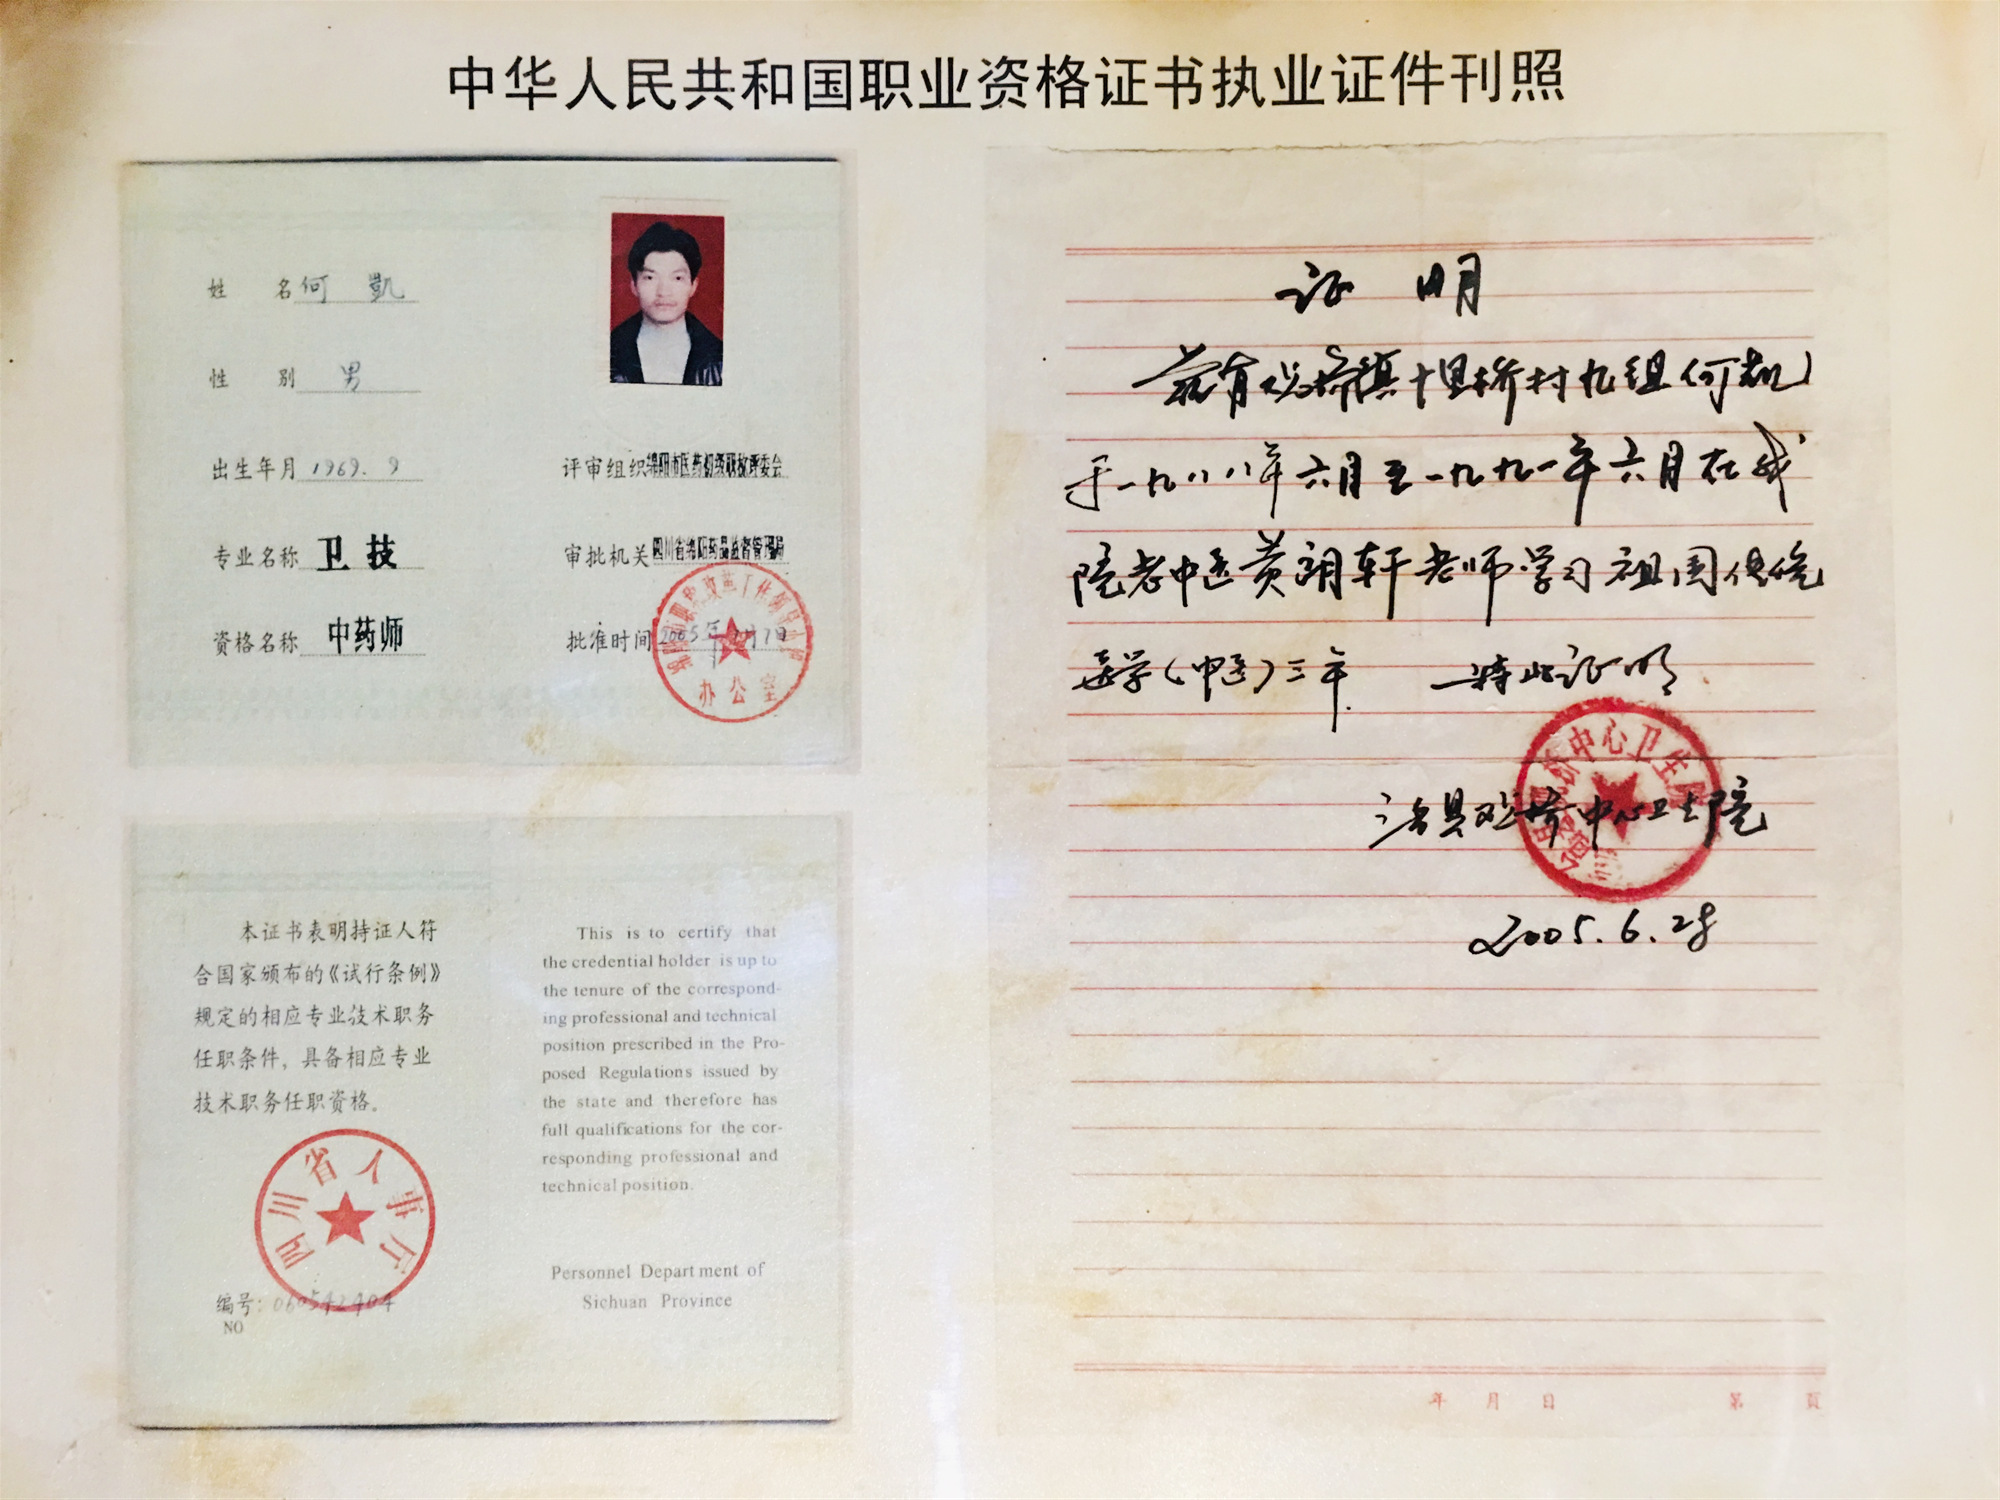 中华人民共和国职业资格证书执业证件刊照
姓 名 何 凱
性 别 男
出生年月 1969.9
专业名称 卫技
资格名称 中药师
评审组织 绵阳市医药初级职改评委会
审批机关 四川省绵阳药品监督管理局
批准时间 2005年 月7日
办公室
本证书表明持证人符
合国家颁布的《试行条例》
规定的相应专业技术职务
任职条件，具备相应专业
技术职务任职资格。
四川省人事厅
编号：060542404
NO
This is to certify that
the credential holder is up to
the tenure of the correspond-
ing professional and technical
position prescribed in the Pro-
posed Regulations issued by
the state and therefore has
full qualifications for the cor-
responding professional and
technical position.
Personnel Department of
Sichuan Province
证 明
兹有观桥镇十里桥村九组何凯
于一九八八年六月至一九九一年六月在我
院老中医黄朗轩老师学习祖国传统
医学（中医）三年 特此证明
三台县观桥中心卫生院
2005.6.28
年 月 日 第 頁